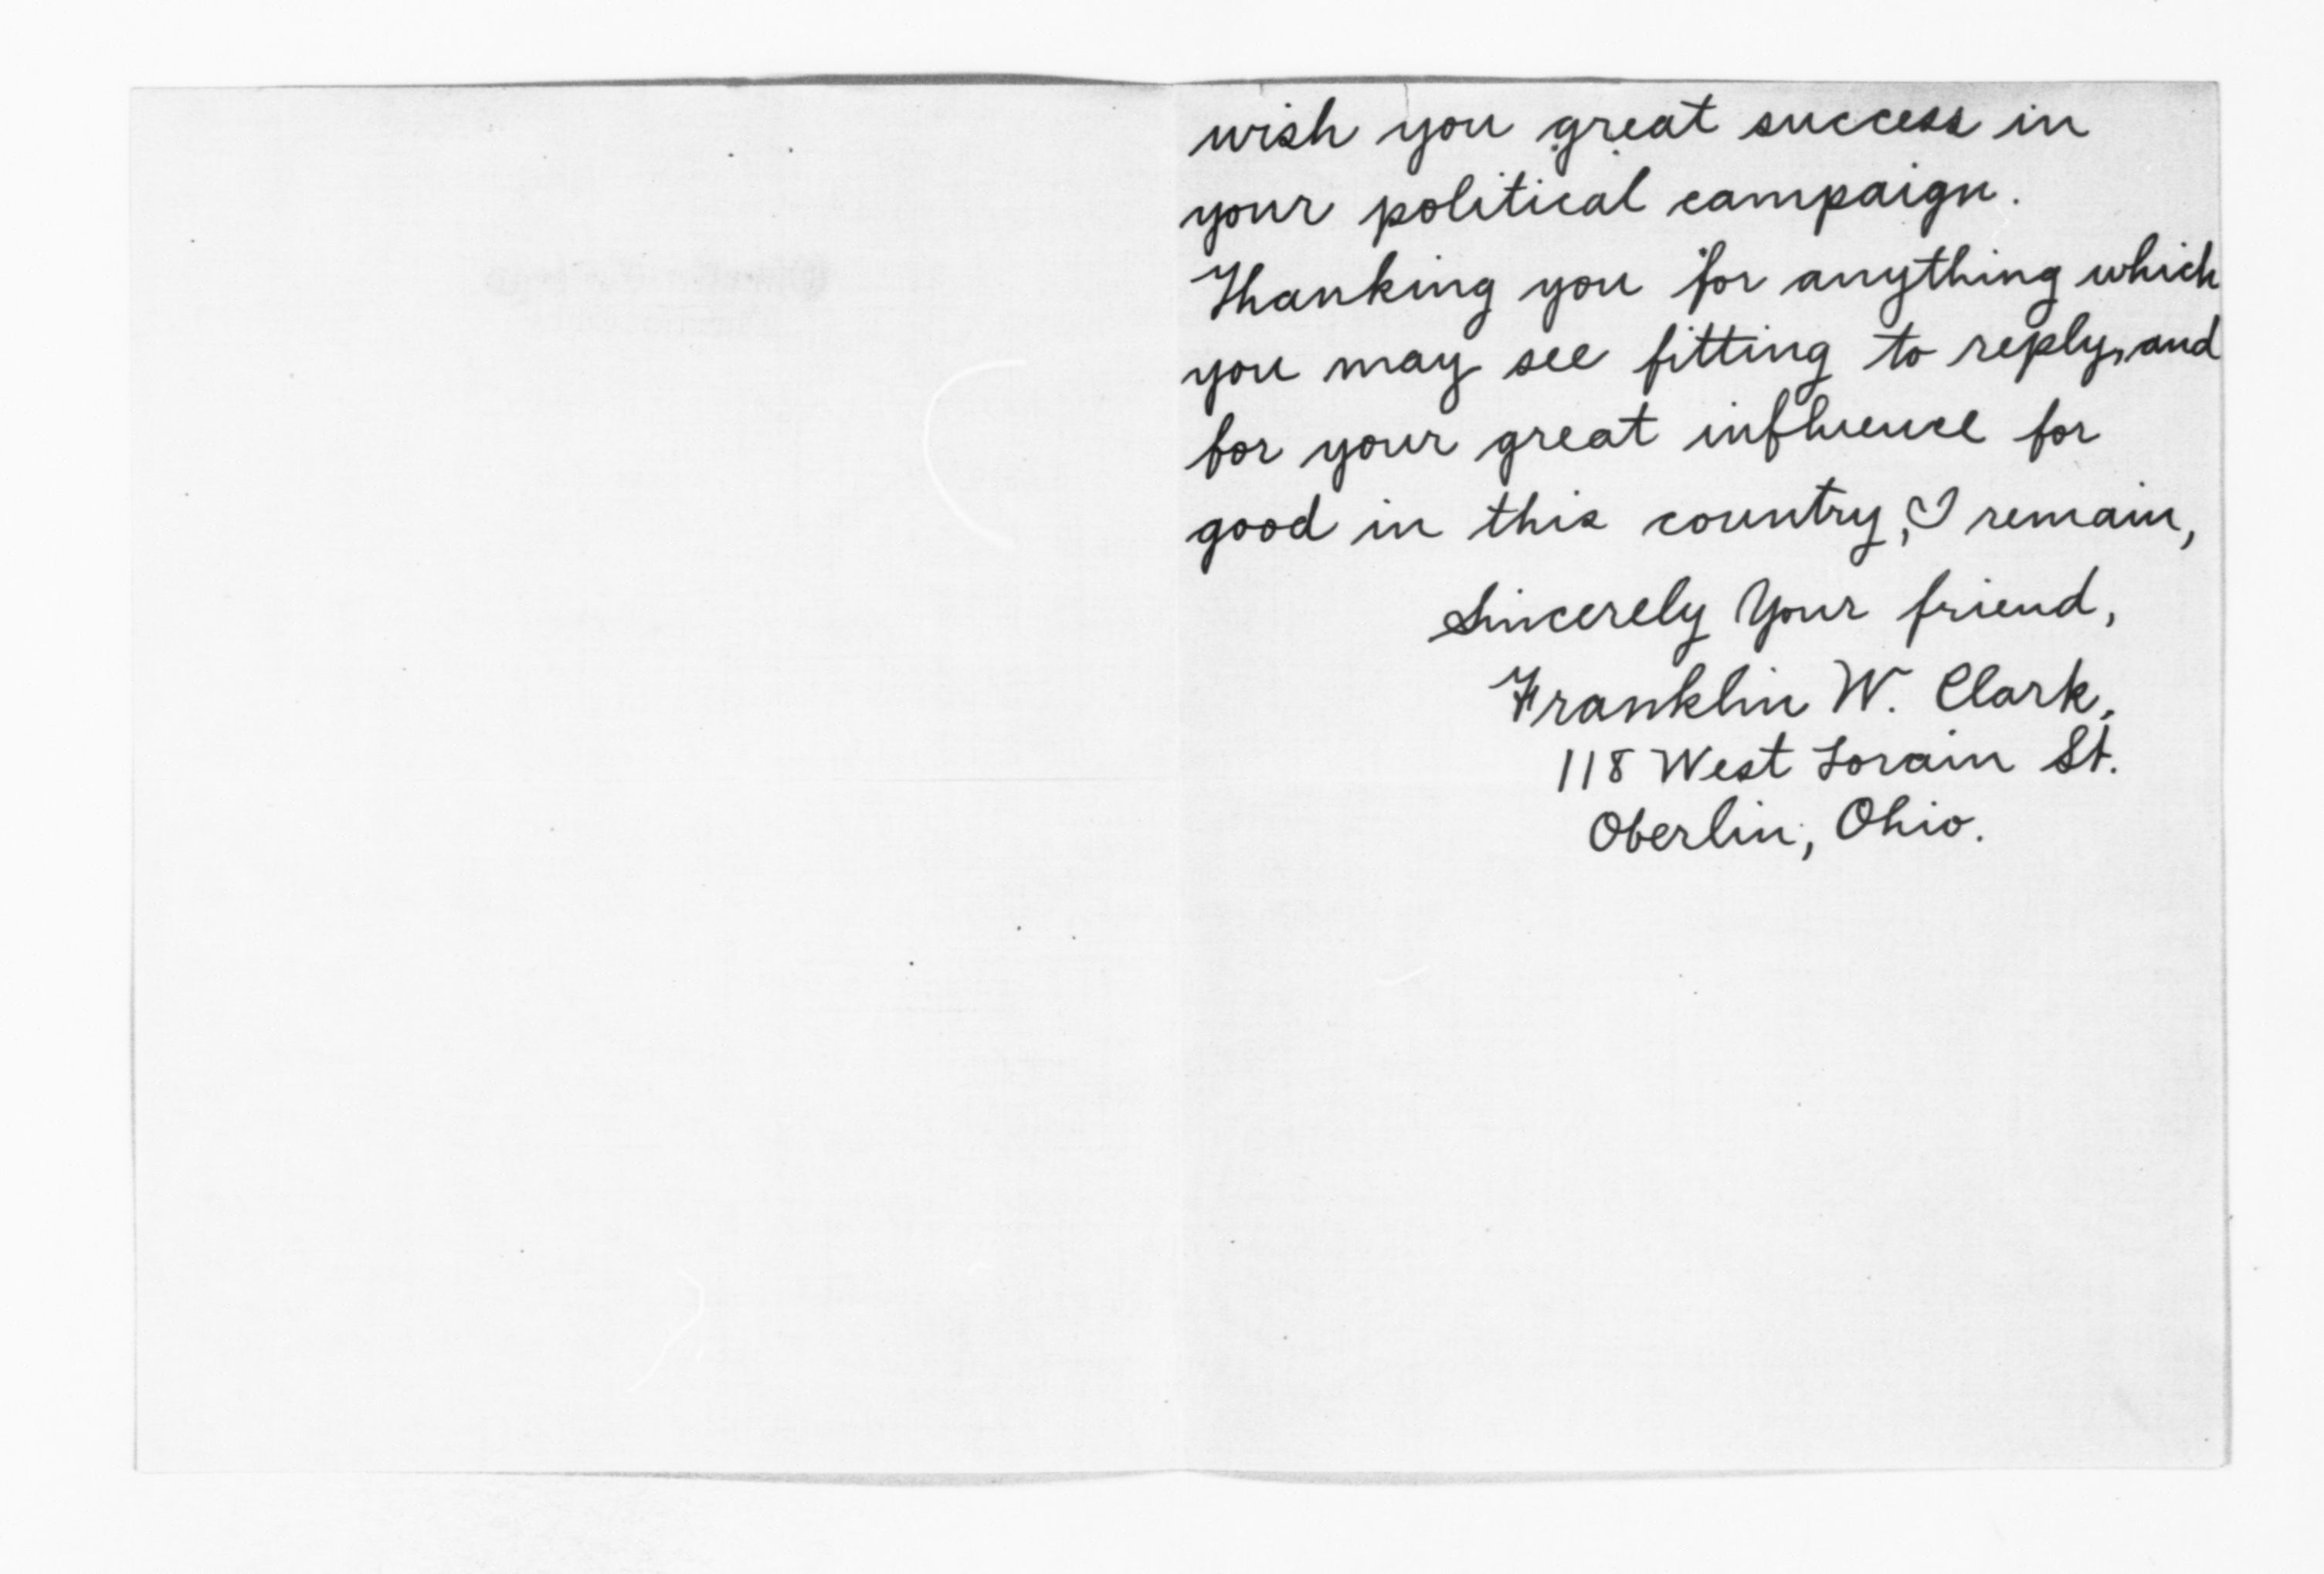 wish you great success in
your political campaign.
Thanking you for anything which
you may see fitting to reply, and
for your great influence for
good in this country, I remain,
Sincerely Your friend,
Franklin W. Clark,
118 West Lorain St.
Oberlin, Ohio.